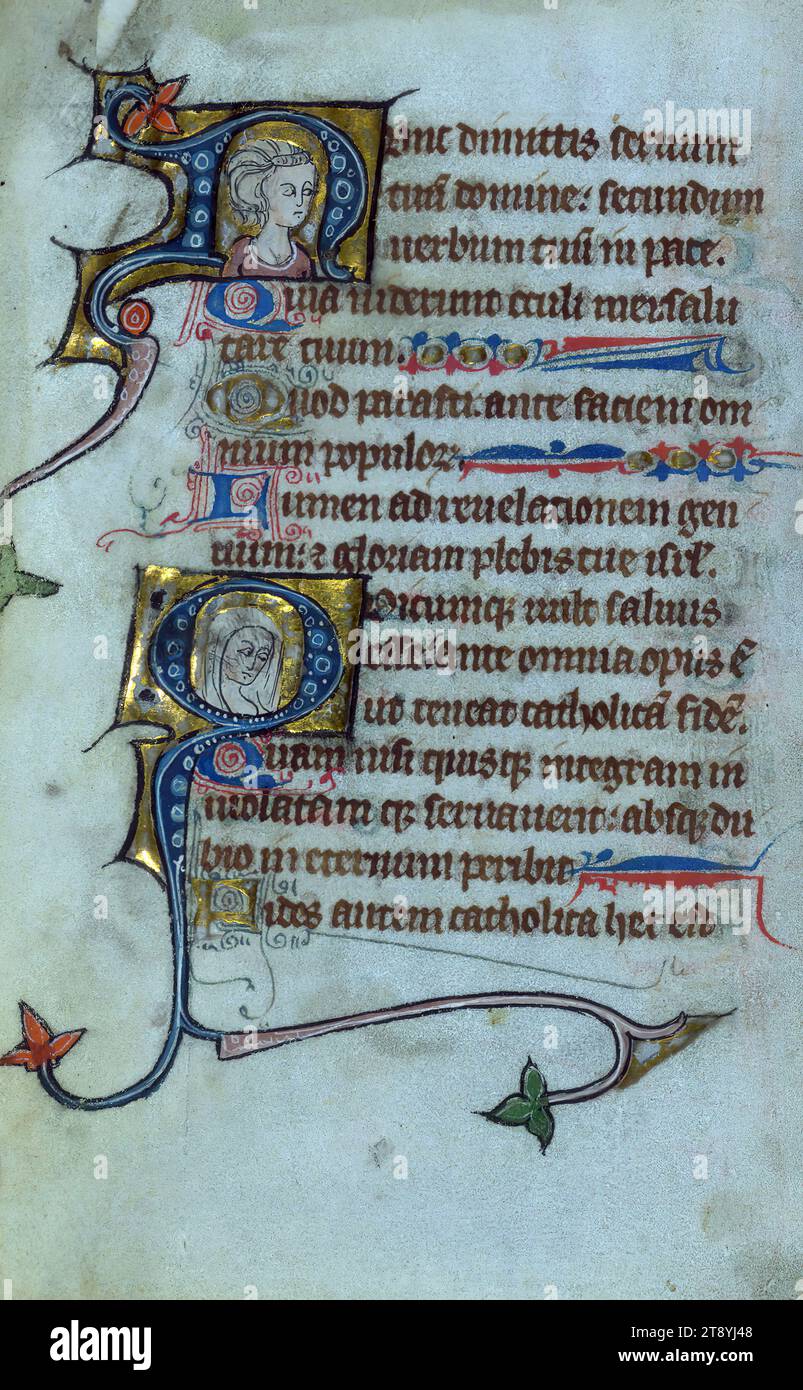 Nunc dimittis seruum
tuū domine: secundum
uerbum tuū in pace.
Quia uiderunt oculi mei salu
tare tuum.
Quod parasti. ante faciem om
nium populoꝝ.
Lumen ad reuelationem gen
tium: ⁊ gloriam plebis tue isrl̓.
Quicumqꝫ uult saluus
esse ante omnia opus ē
ut teneat catholicā fidē.
Quam nisi quisqꝫ integram in
uiolatam qꝫ seruauerit: absqꝫ du
bio in eternum peribit
Fides autem catholica hec est
alamy
Image ID: 2T8YJ48
www.alamy.com